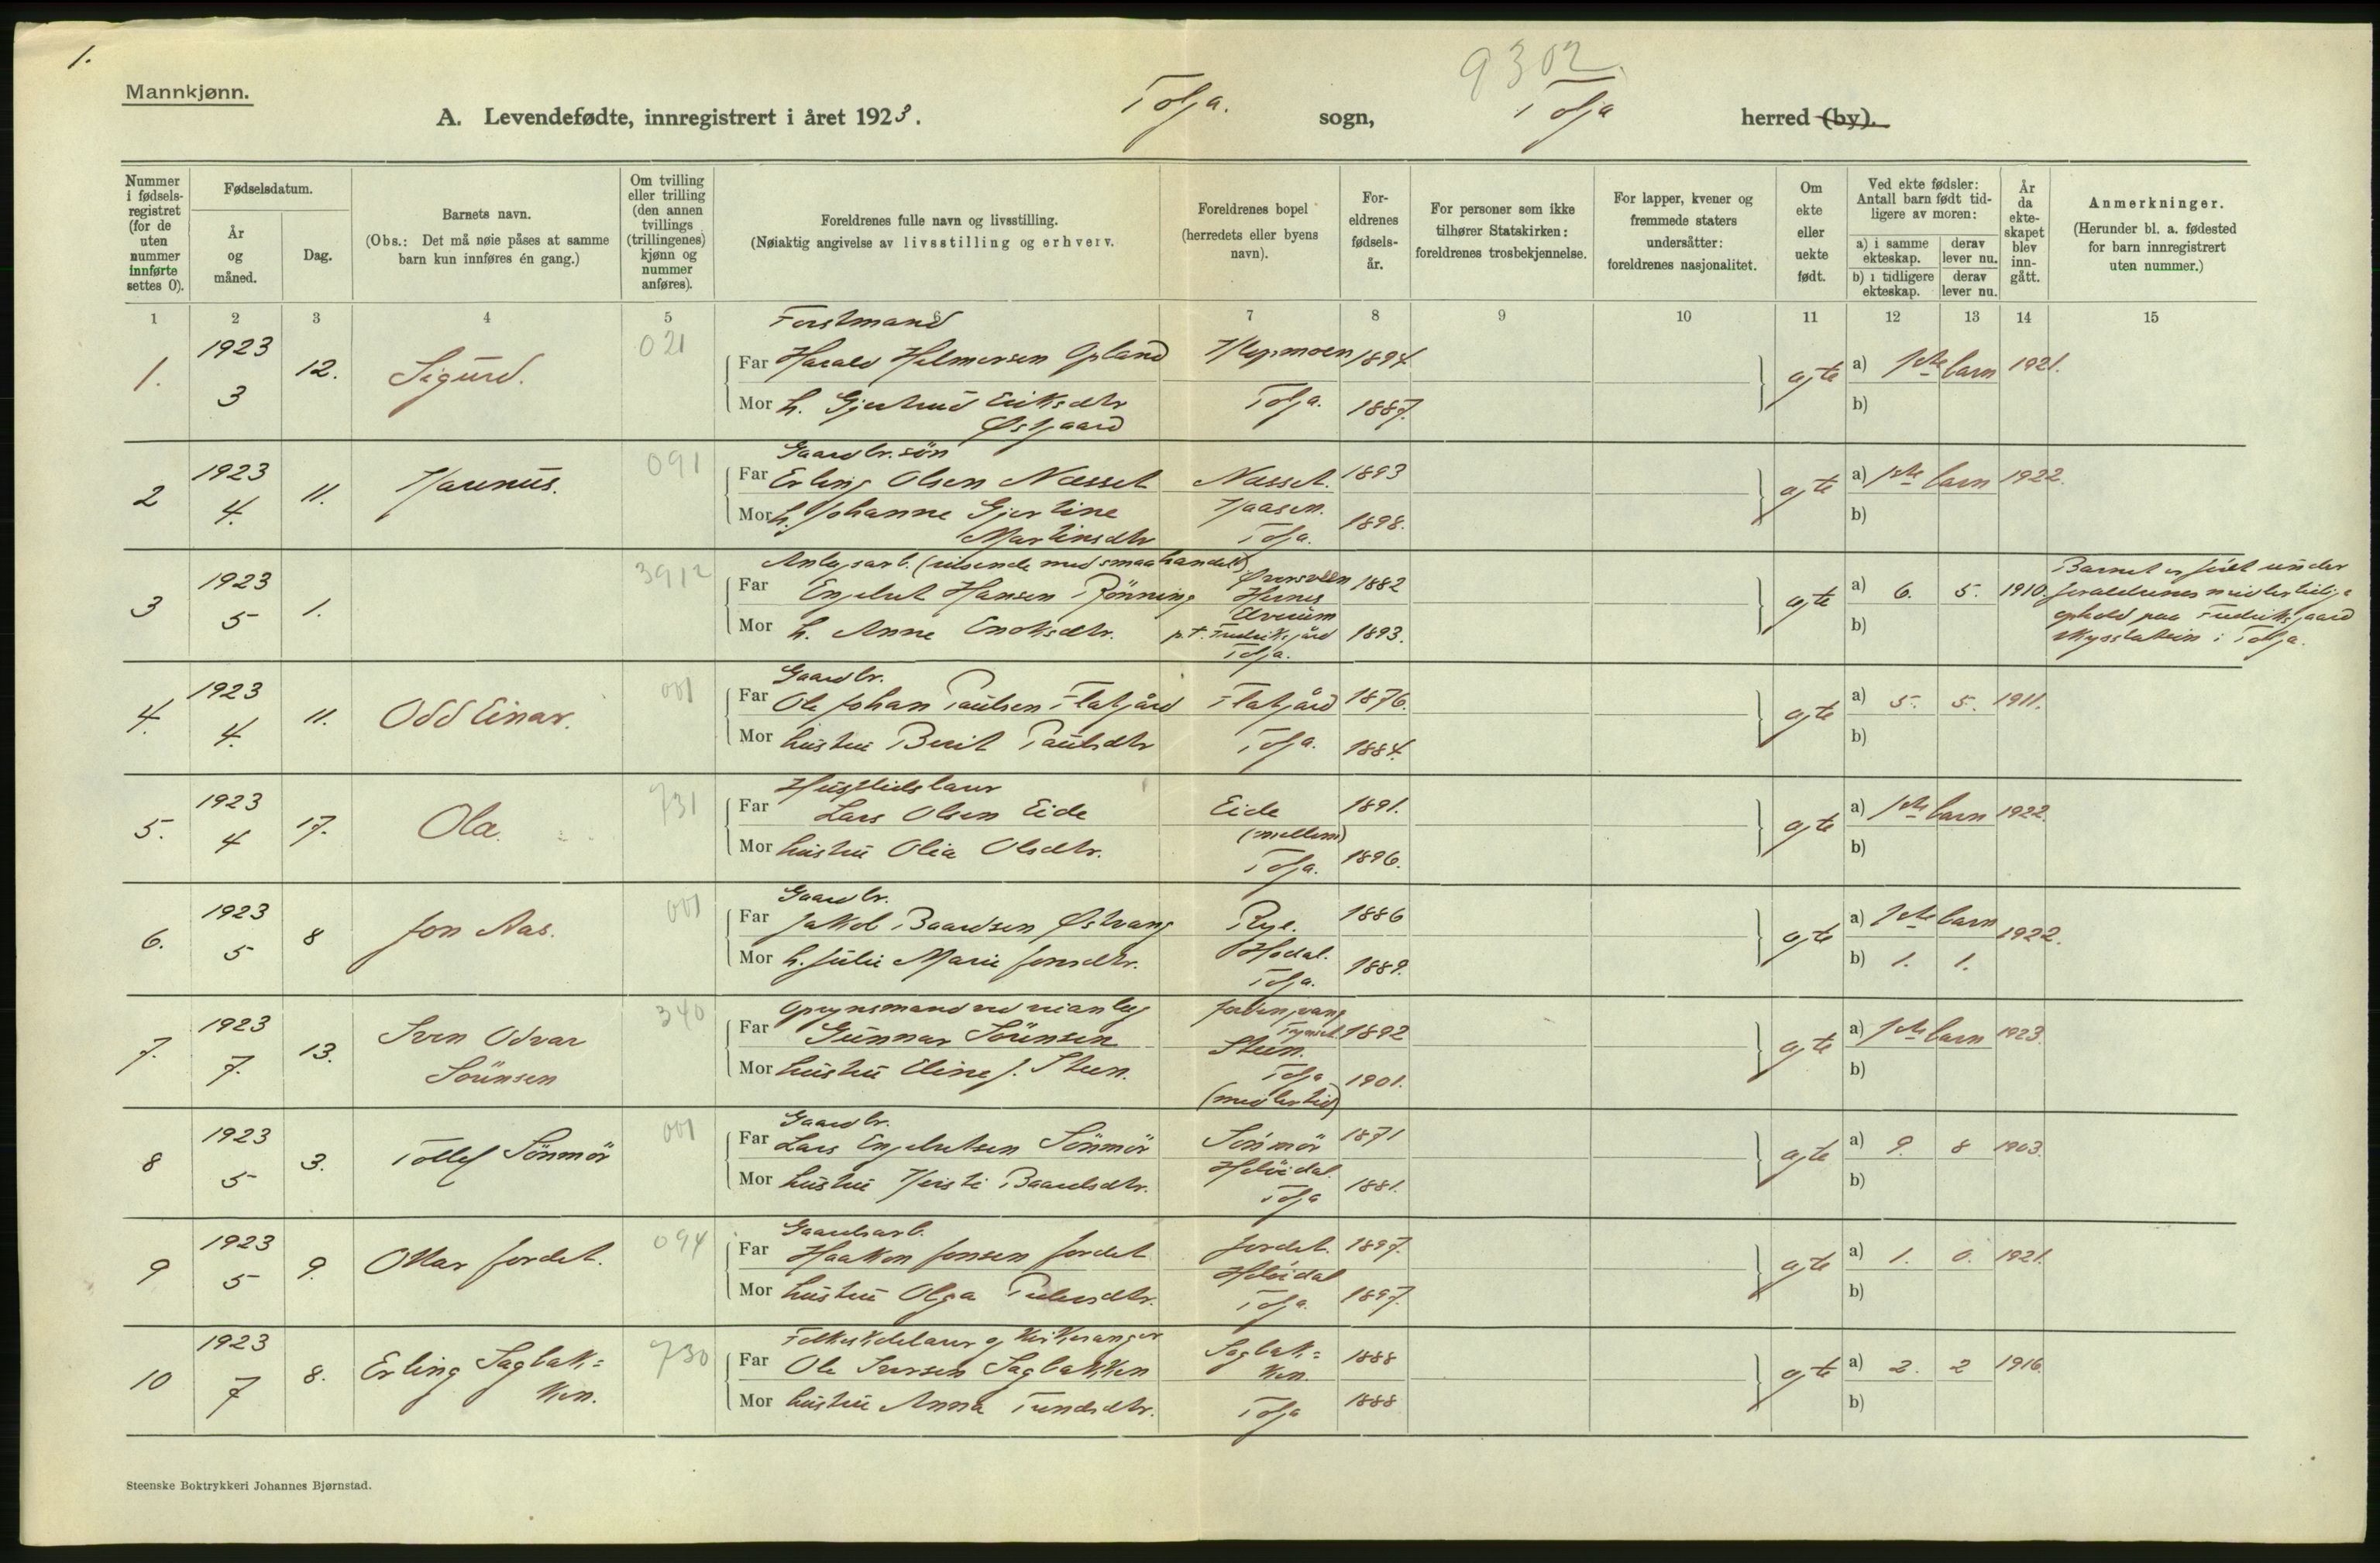 1.
9302
Mannkjønn.
A. Levendefødte, innregistrert i året 1923. Tolga. sogn, Tolga herred (by).
Nummer i fødsels-registret (for de uten nummer innførte settes 0).
Fødselsdatum.
År og måned.
Dag.
Barnets navn.
(Obs.: Det må nøie påses at samme barn kun innføres én gang.)
Om tvilling eller trilling (den annen tvillings (trillingenes) kjønn og nummer anføres).
Foreldrenes fulle navn og livsstilling.
(Nøiaktig angivelse av livsstilling og erhverv.
Foreldrenes bopel (herredets eller byens navn).
For-eldrenes fødsels-år.
For personer som ikke tilhører Statskirken: foreldrenes trosbekjennelse.
For lapper, kvener og fremmede staters undersåtter: foreldrenes nasjonalitet.
Om ekte eller uekte født.
Ved ekte fødsler: Antall barn født tid-ligere av moren:
a) i samme ekteskap.
derav lever nu.
b) i tidligere ekteskap.
derav lever nu.
År da ekte-skapet blev inn-gått.
Anmerkninger.
(Herunder bl. a. fødested for barn innregistrert uten nummer.)
1 2 3 4 5 6 7 8 9 10 11 12 13 14 15
Forstmand
1. 1923 3 12. Sigurd. 021
Far Harald Helmersen Opland 1894
Mor h. Gjertrud Eriksdtr Østgaard Tolga. 1887.
ægte a) 1ste barn 1921.
b)
Gaardbr. søn
2 1923 4. 11. Magnus. 091
Far Erling Olsen Næsset Næsset. 1893
Mor h. Johanne Gjertine Martinsdtr Tolga. 1898.
ægte a) 1ste barn 1922.
b)
Anlegsarb. (reisende med smaahandel)
3 1923 5 1. 3912
Far Engebret Hansen Rønning Hernes Elverum 1882
Mor h. Anne Enoksdtr. p.t. Fredriksgård Tolga. 1893.
ægte a) 6. 5. 1910.
b)
Barnet er født under
foreldrenes midlertidige
ophold paa Fredriksgaard
skysstation i Tolga.
Gaardbr.
4. 1923 4. 11. Odd Einar. 001
Far Ole Johan Paulsen Flatgård Flatgård 1876.
Mor hustru Berit Paulsdtr Tolga. 1884.
ægte a) 5. 5. 1911.
b)
Husflidslærer
5. 1923 4 17. Ola. 731
Far Lars Olsen Eide Eide 1891.
Mor hustru Olia Olsdtr. (mellem) Tolga. 1896.
ægte a) 1ste barn 1922.
b)
Gaardbr.
6. 1923 5 8 Jon Aas. 001
Far Jakob Baardsen Østvang Rye. 1886
Mor h. Julie Marie Jonsdtr. Hodal. Tolga. 1889.
ægte a) 1ste barn 1922.
b) 1. 1.
Opsynsmand ved veianleg
7. 1923 7. 13. Sven Odvar Sörensen 340
Far Gunnar Sörensen Trysil 1892
Mor hustru Eline J. Steen. Steen. Tolga (midlertid) 1901.
ægte a) 1ste barn 1923.
b)
Gaardbr.
8 1923 5 3. Tollef Sönmör 001
Far Lars Engebretsen Sönmör Sönmör 1871
Mor hustru Kristi Baardsdtr. Holöidal. Tolga 1881.
ægte a) 9. 8 1903.
b)
Gaardsarb.
9 1923 5 9. Ottar Jordet. 094
Far Haakon Jonsen Jordet Jordet. 1897.
Mor hustru Olga Pedersdtr. Holöidal Tolga. 1897.
ægte a) 1. 0. 1921.
b)
Folkeskolelærer og kirkesanger
10 1923 7 8. Erling Sagbak=ken. 730
Far Ole Iversen Sagbakken Sagbak=ken. 1888
Mor hustru Anna Trondsdtr. Tolga 1888
ægte a) 2. 2 1916.
b)
Steenske Boktrykkeri Johannes Bjørnstad.